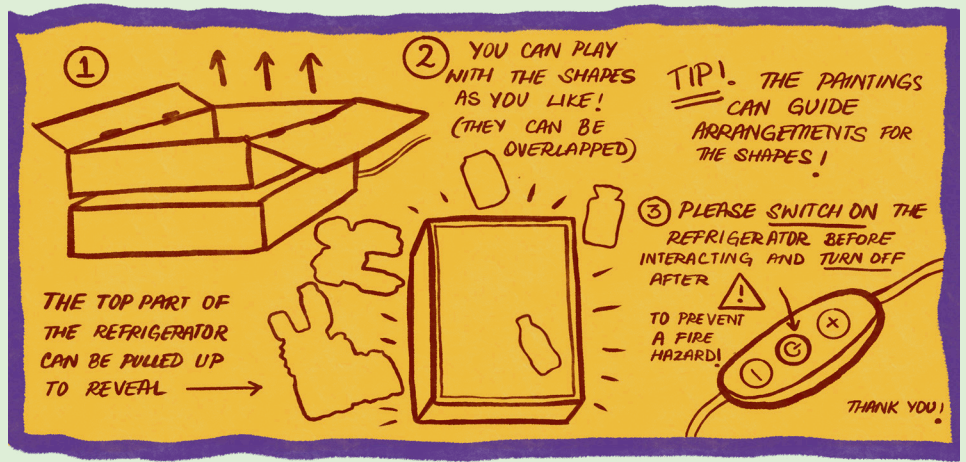 1
THE TOP PART OF
THE REFRIGERATOR
CAN BE PULLED UP
TO REVEAL →
2
YOU CAN PLAY
WITH THE SHAPES
AS YOU LIKE!
(THEY CAN BE
OVERLAPPED)
TIP! THE PAINTINGS
CAN GUIDE
ARRANGEMENTS FOR
THE SHAPES!
3 PLEASE SWITCH ON THE
REFRIGERATOR BEFORE
INTERACTING AND TURN OFF
AFTER
!
TO PREVENT
A FIRE
HAZARD!
THANK YOU!